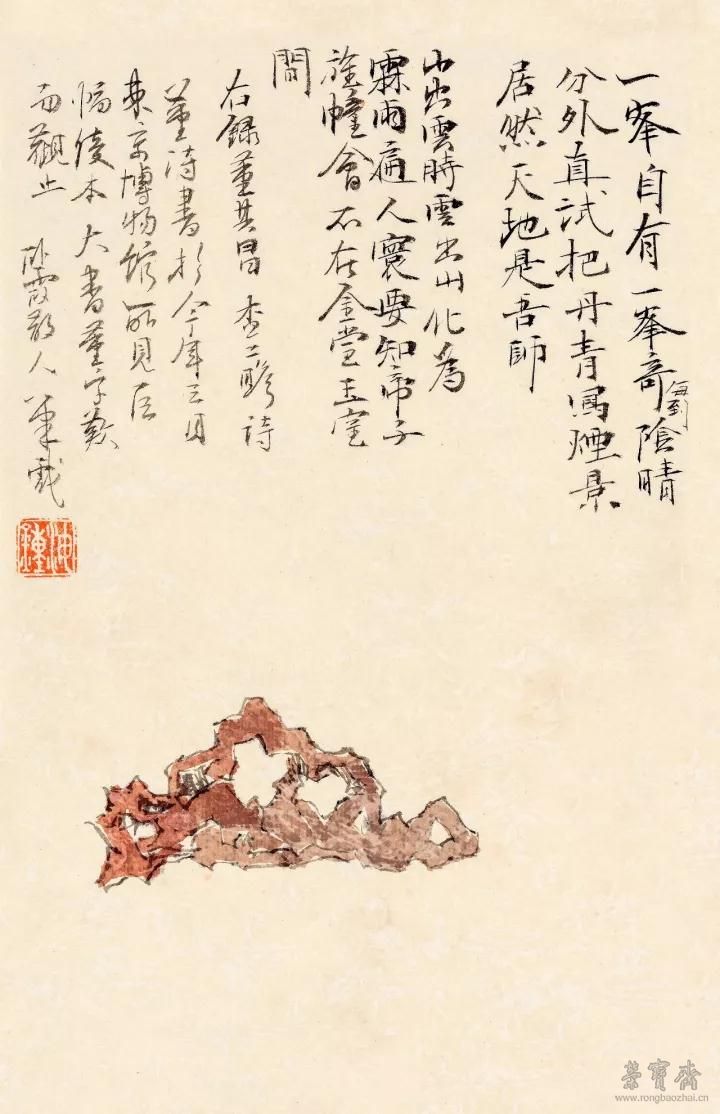 一峯自有一峯奇每到陰晴
分外真試把丹青寫煙景
居然天地是吾師
山出雲時雲出山化為
霖雨遍人寰要知帝子
旌幢會不在金堂玉室
間
右錄董其昌查二瞻詩
董詩書於今年三月
東京博物館所見巨
幅綾本大書董字歎
而觀止 卧霞散人筆戲
榮寶齋
www.rongbaozhai.cn